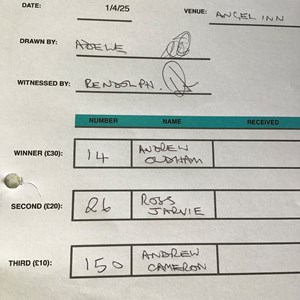 DATE: 1/4/25 VENUE: ANGEL INN
DRAWN BY: ADELE
WITNESSED BY: RENDOLPH.
NUMBER NAME RECEIVED
WINNER (£30): 14 ANDREW OLDHAM
SECOND (£20): 26 ROSS JARVIE
THIRD (£10): 150 ANDREW CAMERON